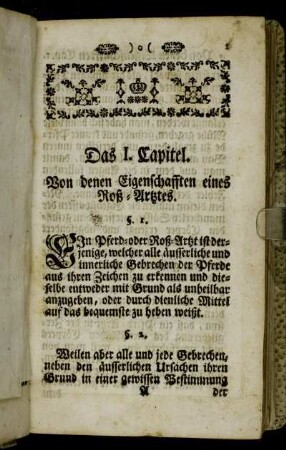 )o(
1
Das I. Capitel.
Von denen Eigenschafften eines
Roß-Artztes.
§. 1.
EIn Pferd-oder Roß-Artzt ist der-
jenige, welcher alle äusserliche und
innerliche Gebrechen der Pferde
aus ihren Zeichen zu erkennen und die-
selbe entweder mit Grund als unheilbar
anzugeben, oder durch dienliche Mittel
auf das bequemste zu heben weißt.
§. 2.
Weilen aber alle und jede Gebrechen,
neben den äusserlichen Ursachen ihren
Grund in einer gewissen Bestimmung
A der